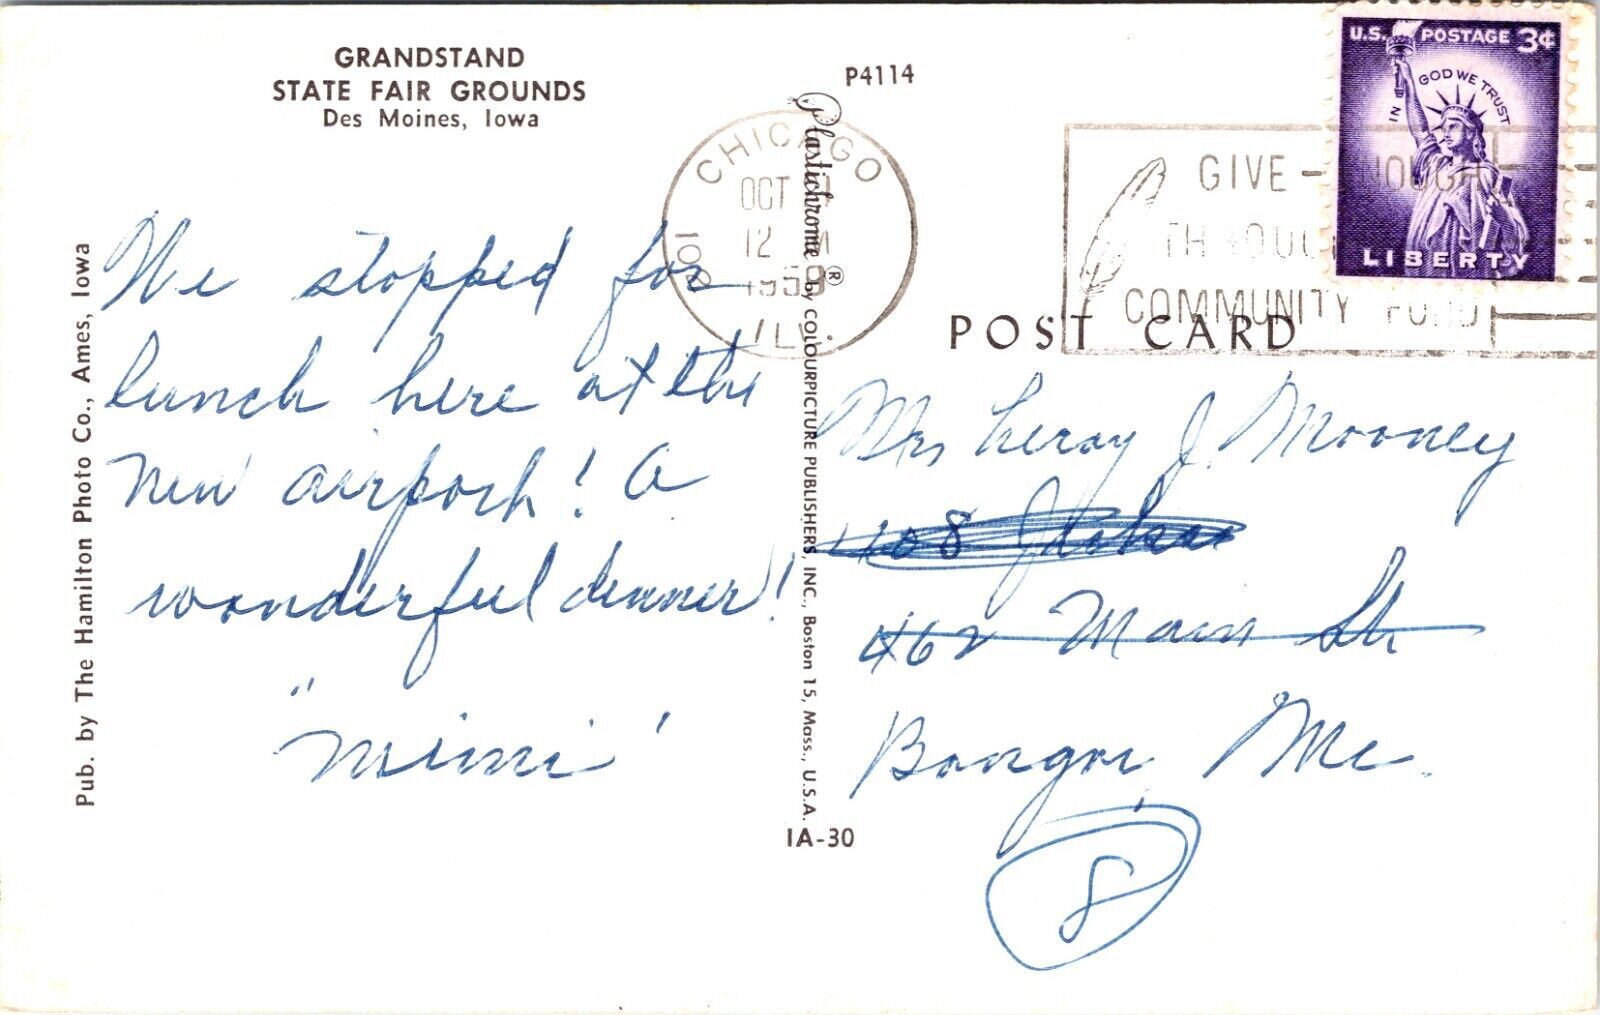 GRANDSTAND
STATE FAIR GROUNDS
Des Moines, Iowa
We stopped for
lunch here at the
new airport! A
wonderful dinner!
"mimi"
Pub. by The Hamilton Photo Co., Ames, Iowa
Plastichrome® by COLOURPICTURE PUBLISHERS, INC., Boston 15, Mass., U.S.A.
P4114
IA-30
CHICAGO
OCT
12 M
1958
ILL.
GIVE - ENOUGH
THROUGH
COMMUNITY FUND
U.S. POSTAGE 3¢
IN GOD WE TRUST
LIBERTY
POST CARD
Mrs Leroy J. Mooney
1108
462 Main St
Bangor, Me.
8